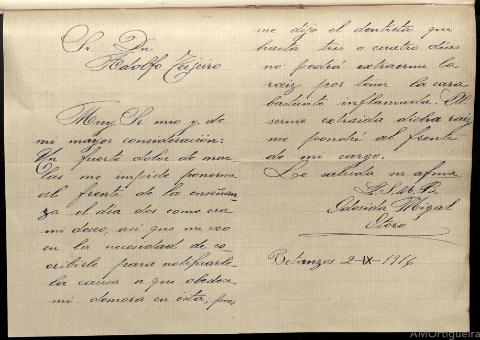 Sr Dn
Adolfo Teijeiro
Muy Sr mio y de
mi mayor consideración:
Un fuerte dolor de mue-
las me impide ponerme
al frente de la enseñan-
za el día dos como era
mi deseo, así que me veo
en la necesidad de es-
cribirle para notificarle
la causa a que obedece
mi demora en ésta, pues
me dijo el dentista que
hasta tres o cuatro días
no podrá extraerme la
raíz por tener la cara
bastante inflamada. Al
serme extraida dicha raíz
me pondré al frente
de mi cargo.
Le saluda su afma
Q. S. M. B.
Otero
Betanzos 2-IX-1916
AMOrtigueira